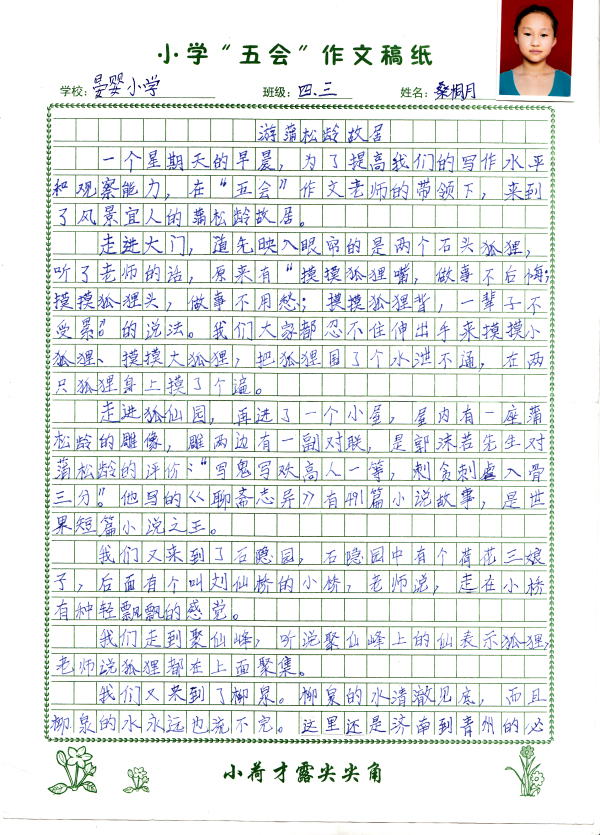 小学“五会”作文稿纸
学校:晏婴小学 班级:四.三 姓名:桑桐月
游蒲松龄故居
一个星期天的早晨，为了提高我们的写作水平
和观察能力，在“五会”作文老师的带领下，来到
了风景宜人的蒲松龄故居。
走进大门，首先映入眼帘的是两个石头狐狸，
听了老师的话，原来有“摸摸狐狸嘴，做事不后悔；
摸摸狐狸头，做事不用愁；摸摸狐狸背，一辈子不
受累。”的说法。我们大家都忍不住伸出手来摸摸小
狐狸、摸摸大狐狸，把狐狸围了个水泄不通，在两
只狐狸身上摸了个遍。
走进狐仙园，再进了一个小屋，屋内有一座蒲
松龄的雕像，雕两边有一副对联，是郭沫若先生对
蒲松龄的评价：“写鬼写妖高人一等，刺贪刺虐入骨
三分。”他写的《聊斋志异》有491篇小说故事，是世
界短篇小说之王。
我们又来到了石隐园，石隐园中有个荷花三娘
子，后面有个叫刘仙桥的小桥，老师说，走在小桥
有种轻飘飘的感觉。
我们走到聚仙峰，听说聚仙峰上的仙表示狐狸，
老师说狐狸都在上面聚集。
我们又来到了柳泉。柳泉的水清澈见底，而且
柳泉的水永远也流不完。这里还是济南到青州的必
小荷才露尖尖角